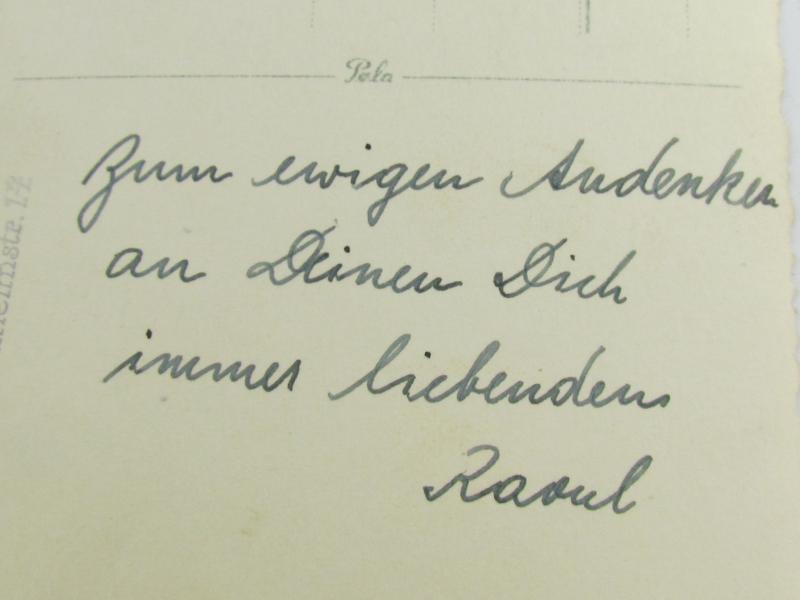 Pela
Zum ewigen Andenken
an Deinen Dich
immer liebenden
Raoul